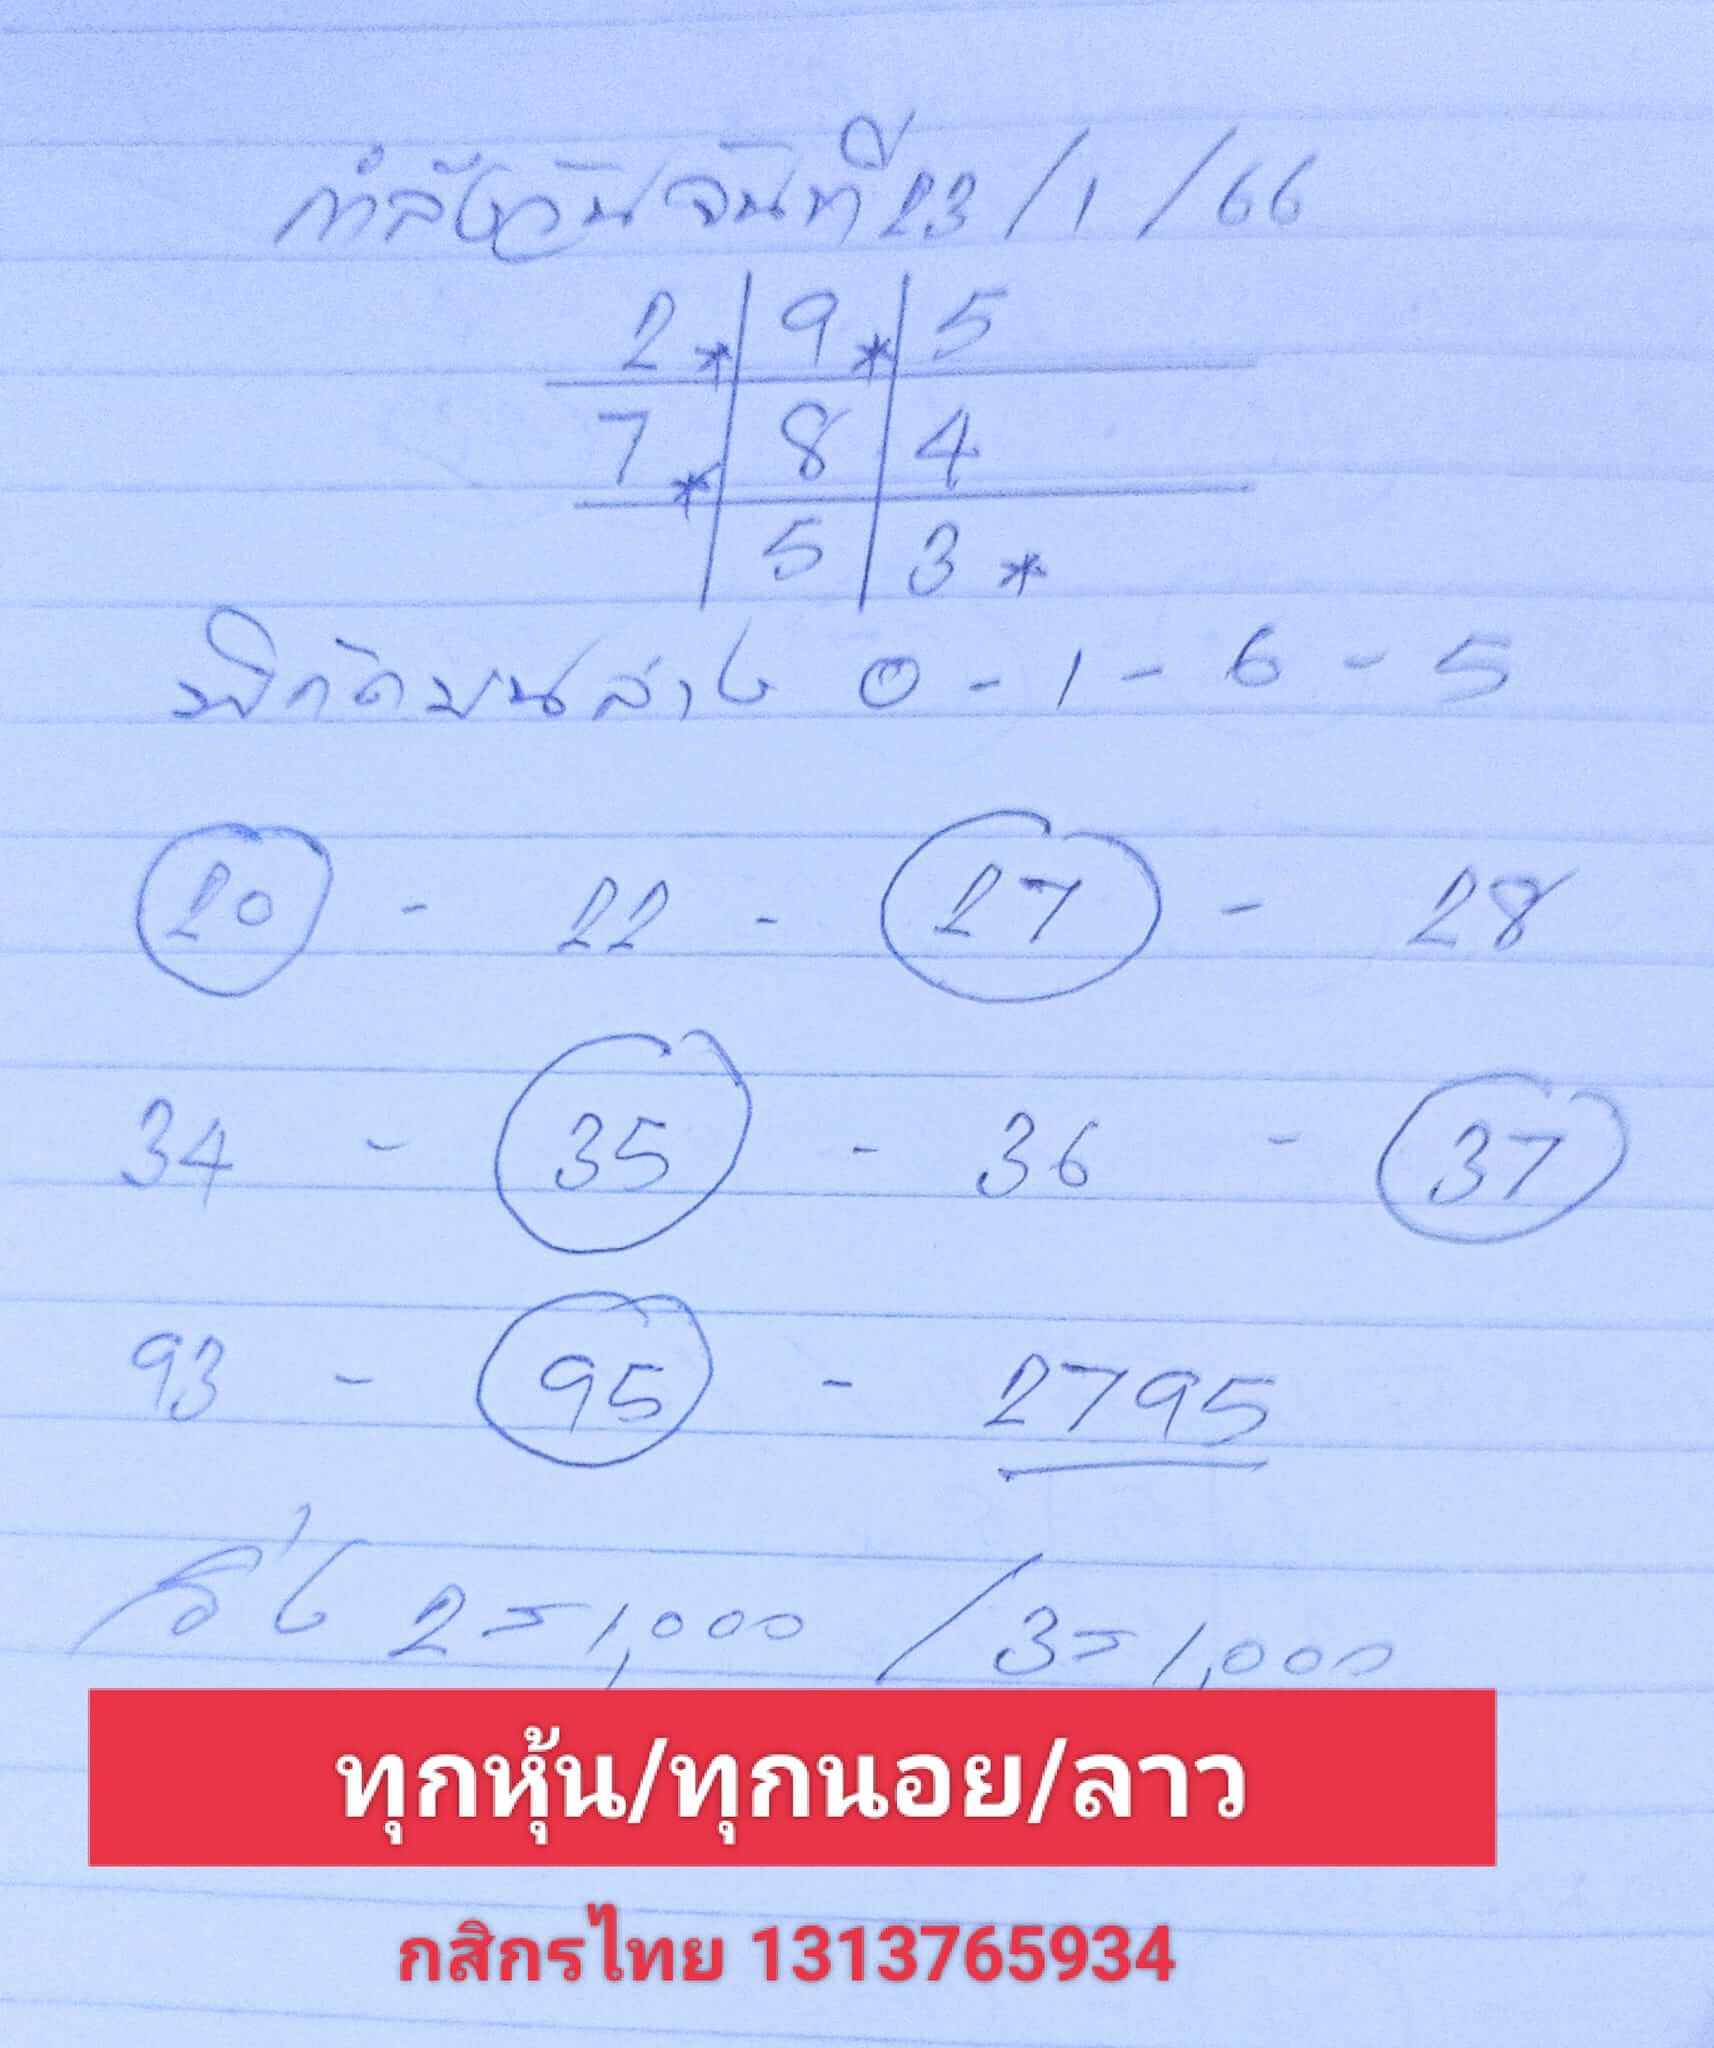 กำลังวันจันที่ 23/1/66
2* 9* 5
7* 8 4
5 3*
พิกัดบนล่าง 0-1-6-5
20 - 22 - 27 - 28
34 - 35 - 36 - 37
93 - 95 - 2795
วิ่ง 2=1,000 / 3=1,000
ทุกหุ้น/ทุกนอย/ลาว
กสิกรไทย 1313765934